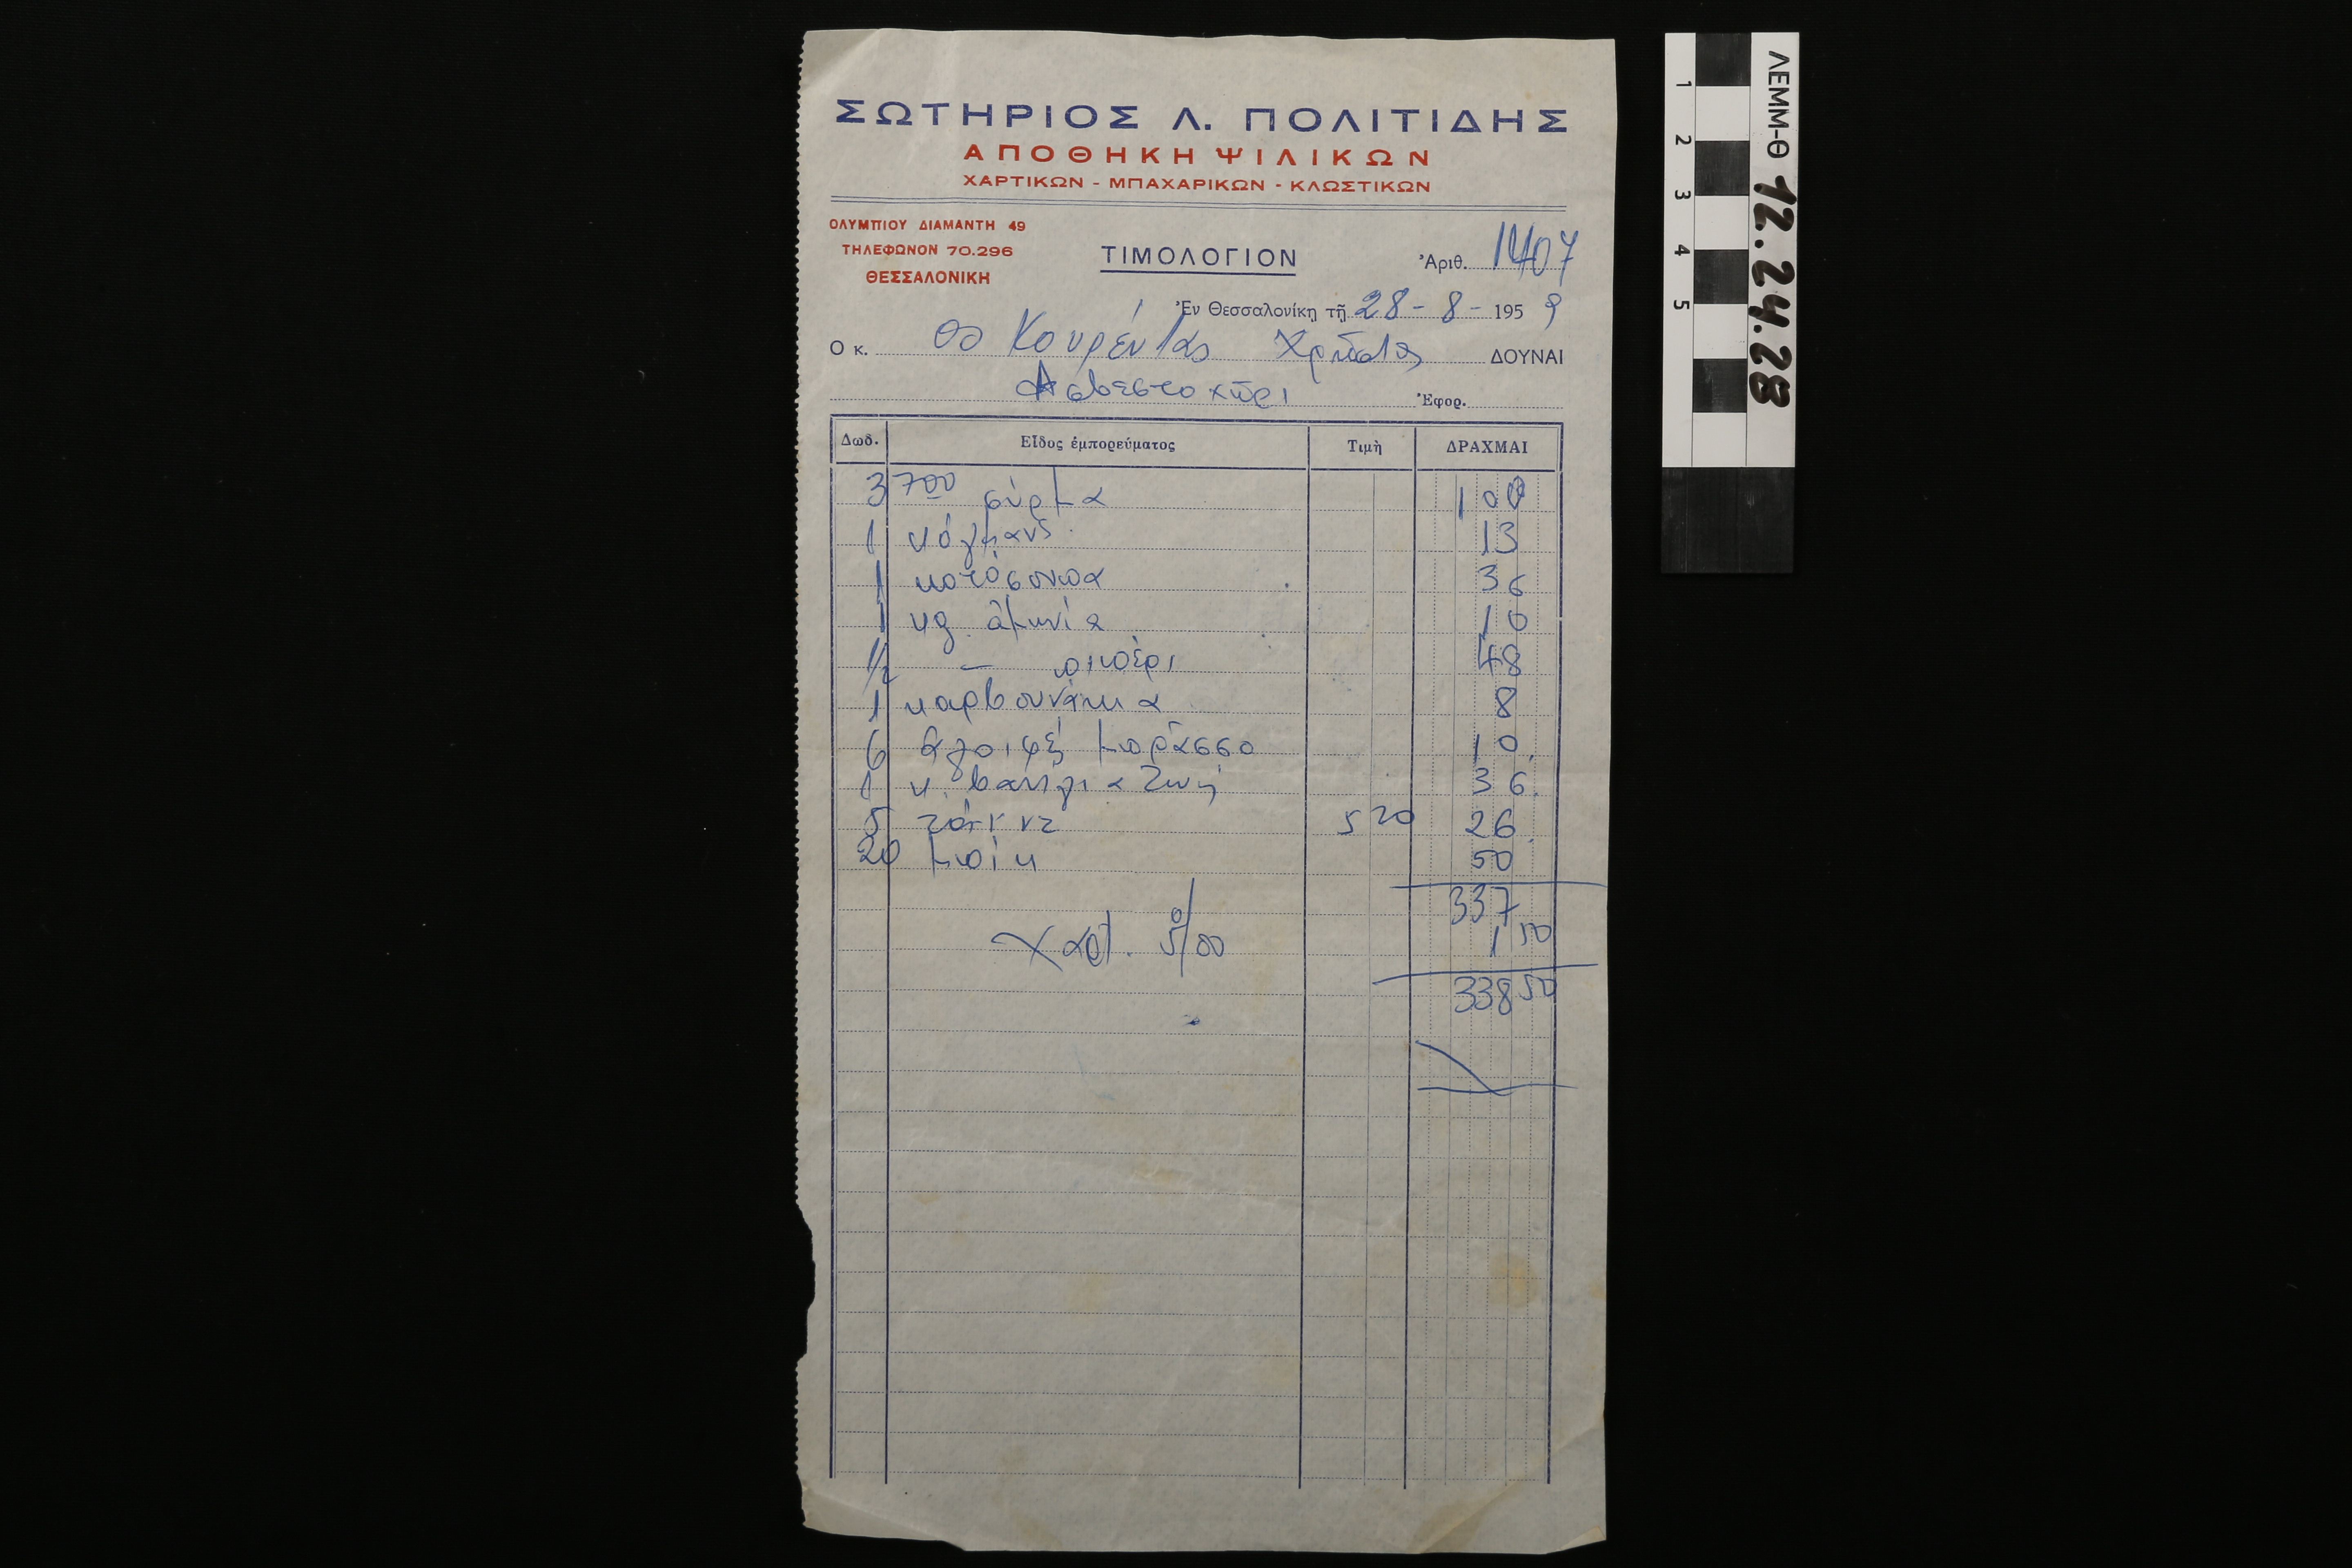 ΣΩΤΗΡΙΟΣ Λ. ΠΟΛΙΤΙΔΗΣ
ΑΠΟΘΗΚΗ ΨΙΛΙΚΩΝ
ΧΑΡΤΙΚΩΝ - ΜΠΑΧΑΡΙΚΩΝ - ΚΛΩΣΤΙΚΩΝ
ΟΛΥΜΠΙΟΥ ΔΙΑΜΑΝΤΗ 49
ΤΗΛΕΦΩΝΟΝ 70.296
ΘΕΣΣΑΛΟΝΙΚΗ
ΤΙΜΟΛΟΓΙΟΝ
Ἀριθ. 1407
Ἐν Θεσσαλονίκῃ τῇ 28 - 8 - 1959
Ο κ. Κουρέντας Χρῆστος ΔΟΥΝΑΙ
Ασβεστοχῶρι Ἐφορ.
Δωδ. Εἶδος ἐμπορεύματος Τιμὴ ΔΡΑΧΜΑΙ
3 700 σύρμα 100
1 13
1 36
1 κg. 10
1/2 — πιπέρι 48
1 καρβουνάκια 8
6 10
1 κ. 36
5 5 20 26
20 50
337
Χαρτ. 5 0/00 1 50
338 50
ΛΕΜΜ-Θ 12.24.28
1 2 3 4 5